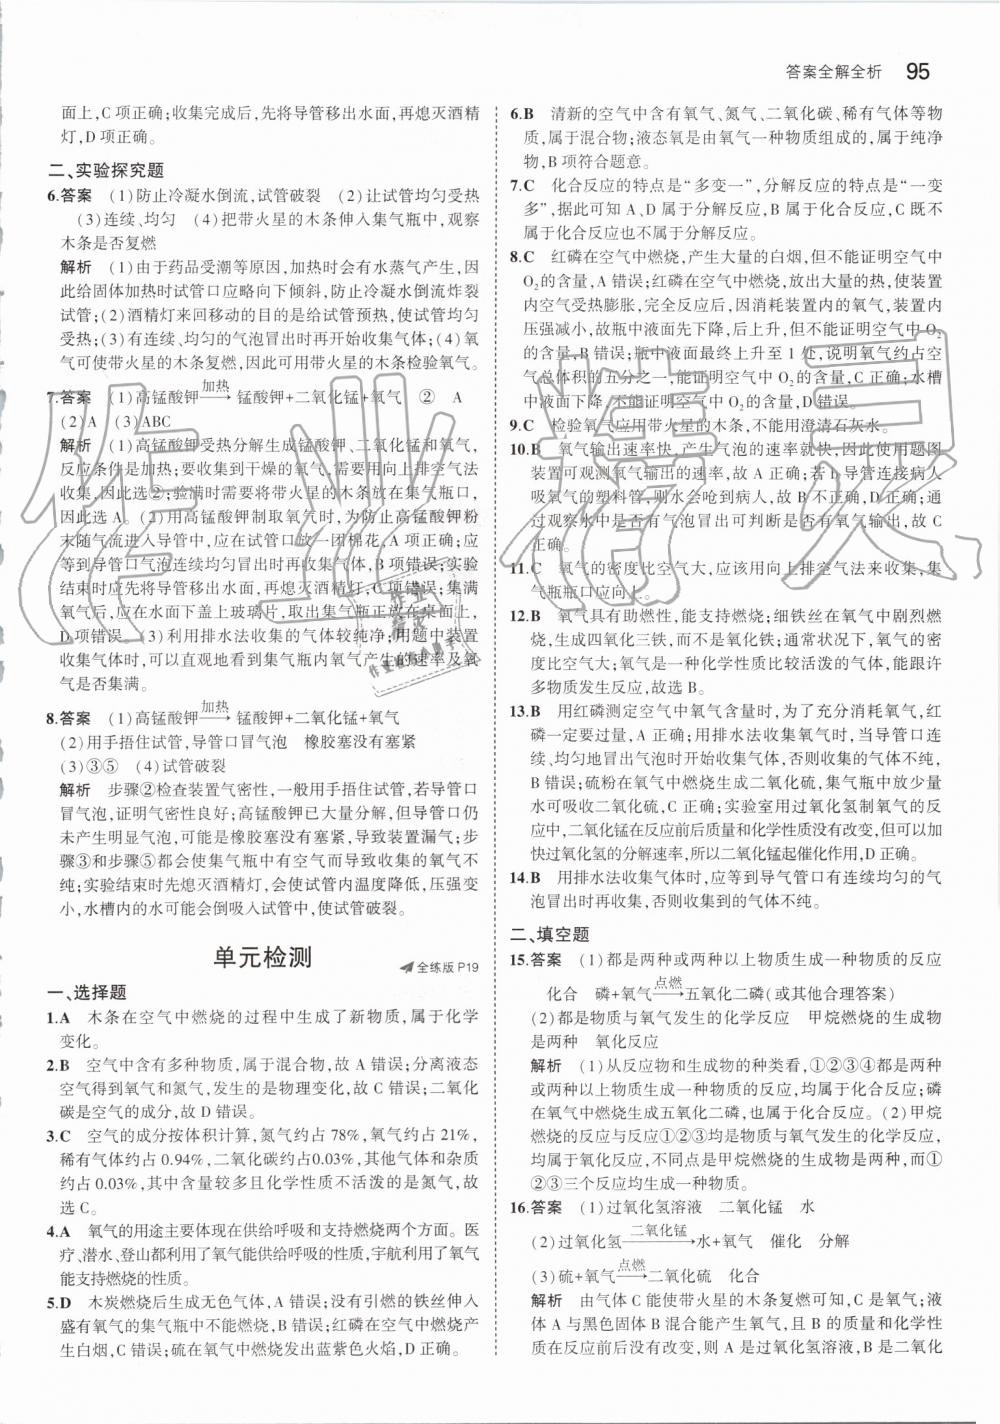 答案全解全析 95
面上,C项正确;收集完成后,先将导管移出水面,再熄灭酒精
灯,D项正确。
二、实验探究题
6.答案 (1)防止冷凝水倒流,试管破裂 (2)让试管均匀受热
(3)连续、均匀 (4)把带火星的木条伸入集气瓶中,观察
木条是否复燃
解析 (1)由于药品受潮等原因,加热时会有水蒸气产生,因
此给固体加热时试管口应略向下倾斜,防止冷凝水倒流炸裂
试管;(2)酒精灯来回移动的目的是给试管预热,使试管均匀
受热;(3)有连续、均匀的气泡冒出时再收集气体;(4)氧
气可使带火星的木条复燃,因此可用带火星的木条检验氧气。
7.答案 (1)高锰酸钾 加热→ 锰酸钾+二氧化锰+氧气 ② A
(2)A (3)ABC
解析 (1)高锰酸钾受热分解生成锰酸钾、二氧化锰和氧气,
反应条件是加热;要收集到干燥的氧气,需用向上排空气法
收集,因此选②;验满时需要将带火星的木条放在集气瓶口,
因此选A。(2)用高锰酸钾制取氧气时,为防止高锰酸钾粉
末随气流进入导管中,应在试管口放一团棉花,A项正确;应
等到导管口气泡连续均匀冒出时再收集气体,B项错误;实验
结束时应先将导管移出水面,再熄灭酒精灯,C项错误;集满
氧气后,应在水面下盖上玻璃片,取出集气瓶正放在桌面上,
D项错误。(3)利用排水法收集的气体较纯净;用题中装置
收集气体时,可以直观地看到集气瓶内氧气产生的速率及氧
气是否集满。
8.答案 (1)高锰酸钾 加热→ 锰酸钾+二氧化锰+氧气
(2)用手捂住试管,导管口冒气泡 橡胶塞没有塞紧
(3)③⑤ (4)试管破裂
解析 步骤②检查装置气密性,一般用手捂住试管,若导管口
冒气泡,证明气密性良好;高锰酸钾已大量分解,但导管口仍
未产生明显气泡,可能是橡胶塞没有塞紧,导致装置漏气;步
骤③和步骤⑤都会使集气瓶中有空气而导致收集的氧气不
纯;实验结束时先熄灭酒精灯,会使试管内温度降低,压强变
小,水槽内的水可能会倒吸入试管中,使试管破裂。
单元检测
全练版P19
一、选择题
1.A 木条在空气中燃烧的过程中生成了新物质,属于化学
变化。
2.B 空气中含有多种物质,属于混合物,故A错误;分离液态
空气得到氧气和氮气,发生的是物理变化,故C错误;二氧化
碳是空气的成分,故D错误。
3.C 空气的成分按体积计算,氮气约占78%,氧气约占21%,
稀有气体约占0.94%,二氧化碳约占0.03%,其他气体和杂质
约占0.03%,其中含量较多且化学性质不活泼的是氮气,故
选C。
4.A 氧气的用途主要体现在供给呼吸和支持燃烧两个方面。医
疗、潜水、登山都利用了氧气能供给呼吸的性质,宇航利用了氧气
能支持燃烧的性质。
5.D 木炭燃烧后生成无色气体,A错误;没有引燃的铁丝伸入
盛有氧气的集气瓶中不能燃烧,B错误;红磷在空气中燃烧产
生白烟,C错误;硫在氧气中燃烧发出蓝紫色火焰,D正确。
6.B 清新的空气中含有氧气、氮气、二氧化碳、稀有气体等物
质,属于混合物;液态氧是由氧气一种物质组成的,属于纯净
物,B项符合题意。
7.C 化合反应的特点是“多变一”,分解反应的特点是“一变
多”,据此可知A、D属于分解反应,B属于化合反应,C既不
属于化合反应也不属于分解反应。
8.C 红磷在空气中燃烧,产生大量的白烟,但不能证明空气中
O₂的含量,A错误;红磷在空气中燃烧,放出大量的热,使装置
内空气受热膨胀,完全反应后,因消耗装置内的氧气,装置内
压强减小,故瓶中液面先下降,后上升,但不能证明空气中O₂
的含量,B错误;瓶中液面最终上升至1处,说明氧气约占空
气总体积的五分之一,能证明空气中O₂的含量,C正确;水槽
中液面下降,不能证明空气中O₂的含量,D错误。
9.C 检验氧气应用带火星的木条,不能用澄清石灰水。
10.B 氧气输出速率快,产生气泡的速率就快,因此使用题图
装置可观测氧气输出的速率,故A正确;若b导管连接病人
吸氧气的塑料管,则水会呛到病人,故B不正确,D正确;通
过观察水中是否有气泡冒出可判断是否有氧气输出,故C
正确。
11.C 氧气的密度比空气大,应该用向上排空气法来收集,集
气瓶瓶口应向上。
12.B 氧气具有助燃性,能支持燃烧;细铁丝在氧气中剧烈燃
烧,生成四氧化三铁,而不是氧化铁;通常状况下,氧气的密
度比空气大;氧气是一种化学性质比较活泼的气体,能跟许
多物质发生反应,故选B。
13.B 用红磷测定空气中氧气含量时,为了充分消耗氧气,红
磷一定要过量,A正确;用排水法收集氧气时,当导管口连
续、均匀地冒出气泡时开始收集气体,否则收集的气体不纯,
B错误;硫粉在氧气中燃烧生成二氧化硫,集气瓶中放少量
水可吸收二氧化硫,C正确;实验室用过氧化氢制氧气的反
应中,二氧化锰在反应前后质量和化学性质没有改变,但可以
加快过氧化氢的分解速率,所以二氧化锰起催化作用,D正确。
14.B 用排水法收集气体时,应等到导气管口有连续均匀的气
泡冒出时再收集,否则收集到的气体不纯。
二、填空题
15.答案 (1)都是两种或两种以上物质生成一种物质的反应
化合 磷+氧气 点燃→ 五氧化二磷(或其他合理答案)
(2)都是物质与氧气发生的化学反应 甲烷燃烧的生成物
是两种 氧化反应
解析 (1)从反应物和生成物的种类看,①②③④都是两种
或两种以上物质生成一种物质的反应,均属于化合反应;磷
在氧气中燃烧生成五氧化二磷,也属于化合反应。(2)甲烷
燃烧的反应与反应①②③均是物质与氧气发生的化学反应,
均属于氧化反应,不同点是甲烷燃烧的生成物是两种,而①
②③三个反应均生成一种物质。
16.答案 (1)过氧化氢溶液 二氧化锰 水
(2)过氧化氢 二氧化锰→ 水+氧气 催化 分解
(3)硫+氧气 点燃→ 二氧化硫 化合
解析 由气体C能使带火星的木条复燃可知,C是氧气;液
体A与黑色固体B混合能产生氧气,且B的质量和化学性
质在反应前后没有改变,则A是过氧化氢溶液,B是二氧化